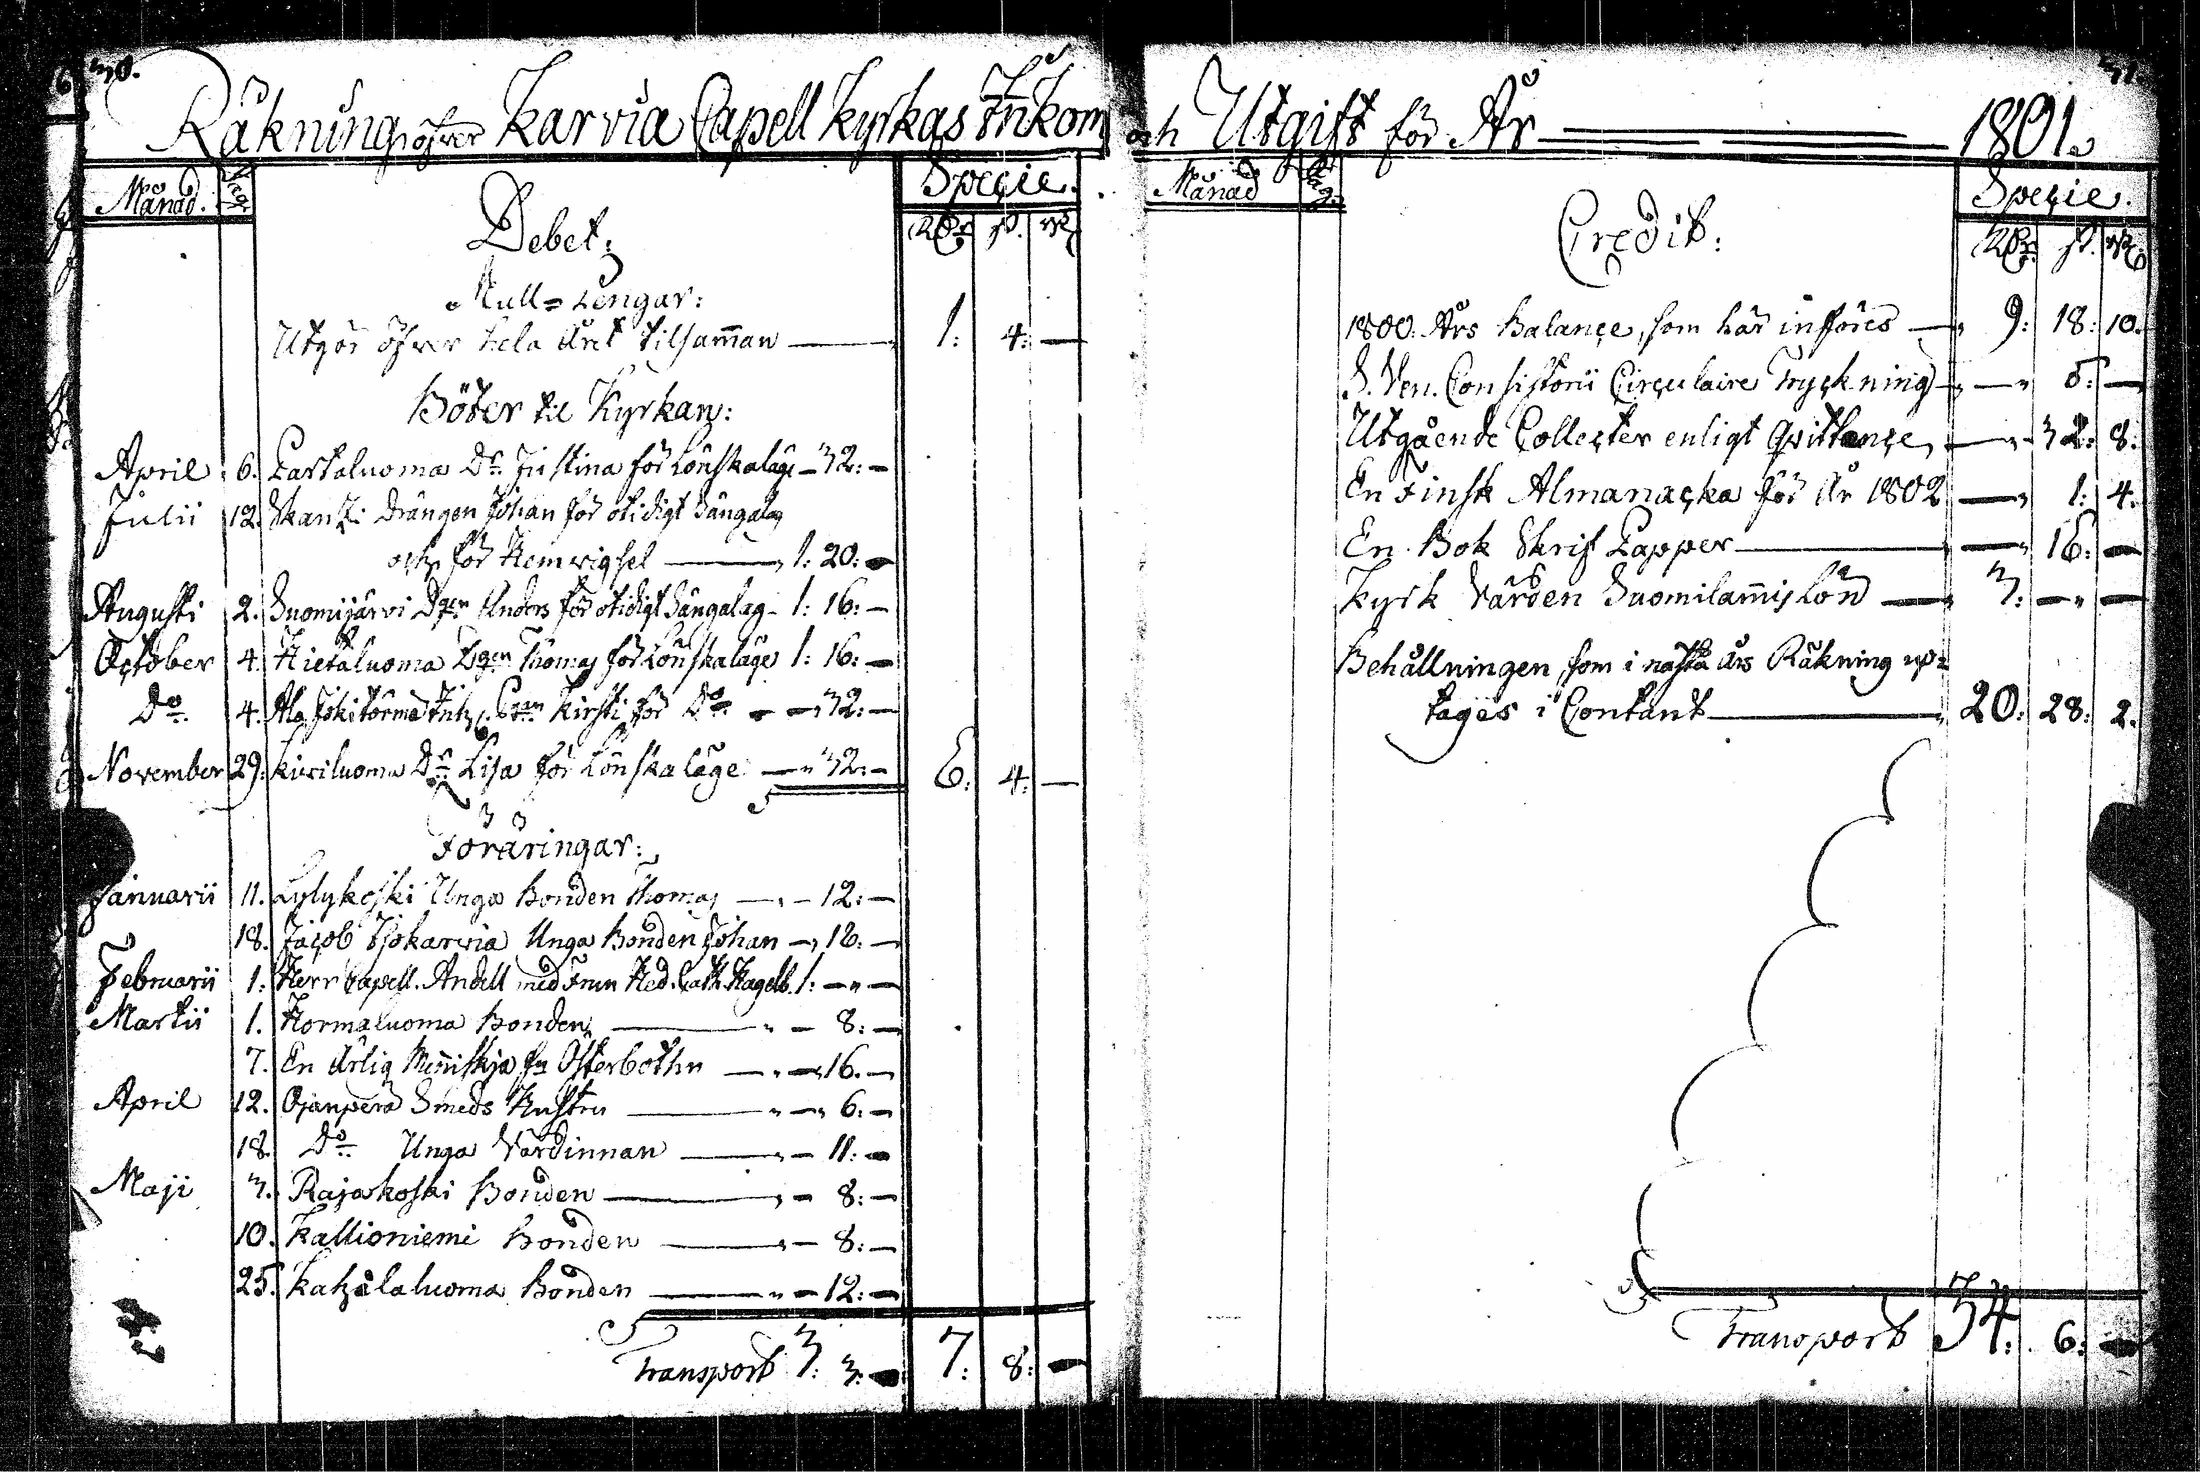 30.
Räkning öfver Karvia Capell Kyrkas Inkom
Månad. Dag. Specie.
Debet: RDr. ß. rst.
Mull-Pengar:
Utgör öfver hela året tilsam̄an — 1: 4: —
Böter til Kyrkan:
April 6. Pastaluoma Dr. Justina för Lönskaläge - 32: —
Julii 12. Skantzi Drängen Johan för otidigt Sängalag
och för Hemvigsel — 1: 20: —
Augusti 2. Suomijärvi Dgen Anders för otidigt Sängalag - 1: 16: —
October 4. Hietaluoma Dgen Thomas för Lönskaläge 1: 16: —
Do. 4. Ala Jokitörmä Kirsti för Do. — 32: —
November 29. Kiviluoma Dr. Lisa för Lönskaläge — 32: — 6: 4: —
Föräringar:
Januarii 11. Lylykoski Unga Bonden Thomas — 12: —
18. Jacob Isokarvia Unga Bonden Johan — 18: —
Februarii 1. Herr Capell. Andell med Frun Hed. Cath. Hagelb. 1: — —
Martii 1. Hormaluoma Bonden — 8: —
7. En ärlig Menniskja fr Österbothn — 16. —
April 12. Ojanperä Smeds Hustru — 6: —
18. Do Unga Värdinnan — 11: —
Maji 3. Rajakoski Bonden — 8: —
10. Kallioniemi Bonden — 8: —
25. Katzalaluoma Bonden — 12: —
Transport 3: 3: — 7: 8: —
31.
och Utgift för År 1801.
Månad Dag. Specie.
Credit: RDr. ß. rst.
1800. Års Balance, som här införes — 9: 18: 10.
S. Ven. Consistorii Circulaire Tryckning — 5: —
Utgående Collecter enligt Qvittance, — 32: 8.
En Finsk Almanacka för År 1802 — 1: 4.
En Bok Skrif Papper — 16: —
Kyrk Värden Suomilam̄is Lön — 3: — —
Behållningen, som i nästa års Räkning up=
tages i Contant — 20: 28: 2.
Transport 34: 6: —